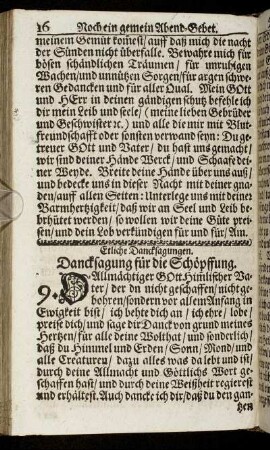 16 Noch ein gemein Abend-Gebet.
meinem Gemüt komest/ auff daß mich die nacht
der Sünden nicht überfalle. Bewahre mich für
bösen schändlichen Träumen/ für unruhigen
Wachen/ und unnützen Sorgen/ für argen schwe-
ren Gedancken und für aller Qual. Mein GOtt
und HErr in deinen gändigen schutz befehle ich
dir mein Leib und seele/ (meine lieben Gebrüder
und Geschwister ꝛc.) und alle die mir mit Blut-
freundschafft oder sonsten verwand seyn: Du ge-
treuer GOtt und Vater/ du hast uns gemacht/
wir sind deiner Hände Werck/ und Schaafe dei-
ner Weyde. Breite deine Hände über uns auß/
und bedecke uns in dieser Nacht mit deiner gna-
den/ auff allen Seiten: Unterlege uns mit deiner
Barmhertzigkeit/ daß wir an Seel und Leib be-
hütet worden/ so wollen wir deine Güte prei-
sen/ und dein Lob verkündigen für und für/ Am.
Etliche Dancksagungen.
Dancksagung für die Schöpffung.
9. O Allmächtiger GOtt Himlischer Va-
ter/ der du nicht geschaffen/ nicht ge-
bohren/ sondern vor allem Anfang in
Ewigkeit bist/ ich behte dich an/ ich ehre/ lobe/
preise dich/ und sage dir Danck von grund meines
Hertzen/ für alle deine Wolthat/ und sonderlich/
daß du Himmel und Erden/ Sonn/ Mond/ und
alle Creaturen/ dazu alles was da lebt und ist/
durch deine Allmacht und Göttlichs Wort ge-
schaffen hast/ und durch deine Weißheit regierest
und erhältest. Auch dancke ich dir/ daß du den gan-
tzen